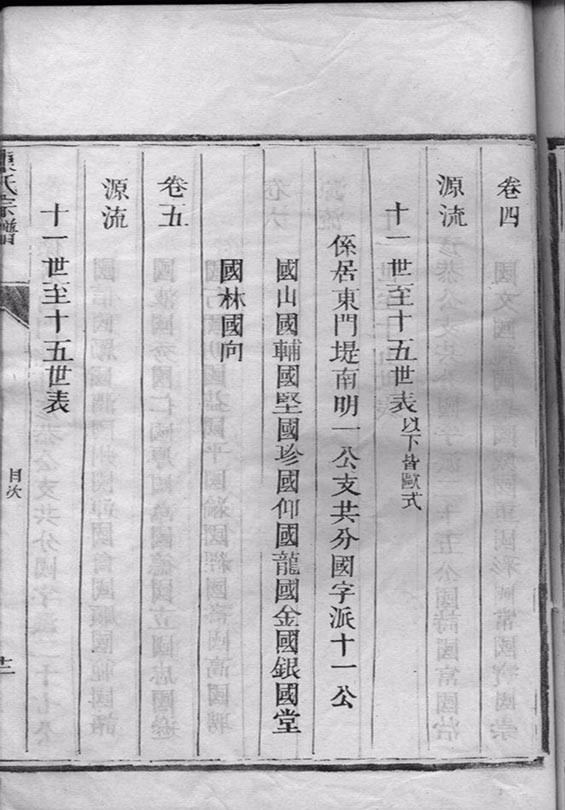 卷四
源流
十一世至十五世表以下皆歐式
係居東門堤南明一公支共分國字派十一公
國山國輔國堅國珍國仰國龍國金國銀國堂
國林國向
卷五
源流
十一世至十五世表
氏宗譜
目次